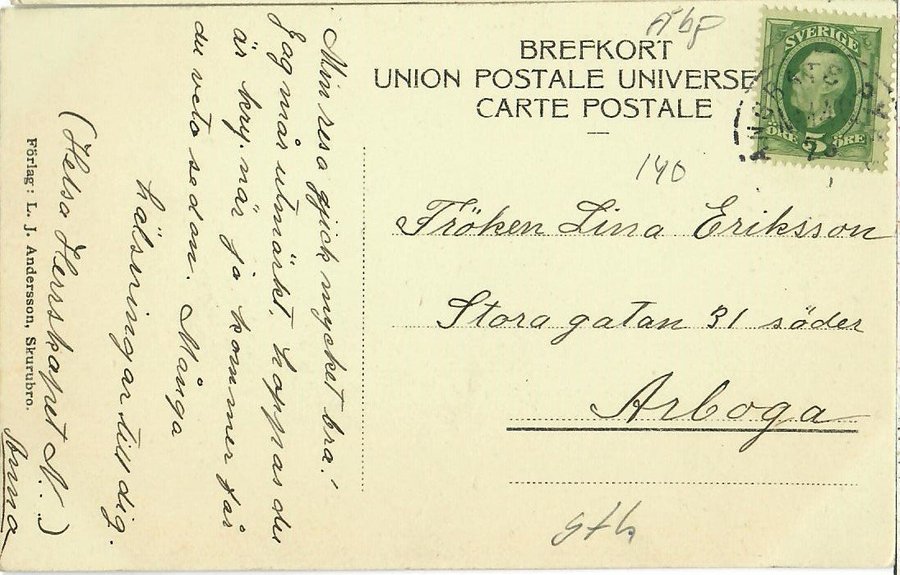 Min resa gjick mycket bra!
Jag mår utmärkt, hoppas du
är kry. när ja kommer får
du veta sedan. Många
hälsningar till dig.
(Helsa Herrskapet N...)
Anna
Förlag: L. J. Andersson, Skurubro.
BREFKORT
UNION POSTALE UNIVERSE
CARTE POSTALE
SVERIGE
ÖRE 5 ÖRE
140
Fröken Lina Eriksson
Stora gatan 31 söder
Arboga
Sth